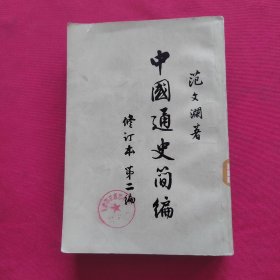 范文瀾著
中國通史简编
修订本 第二编